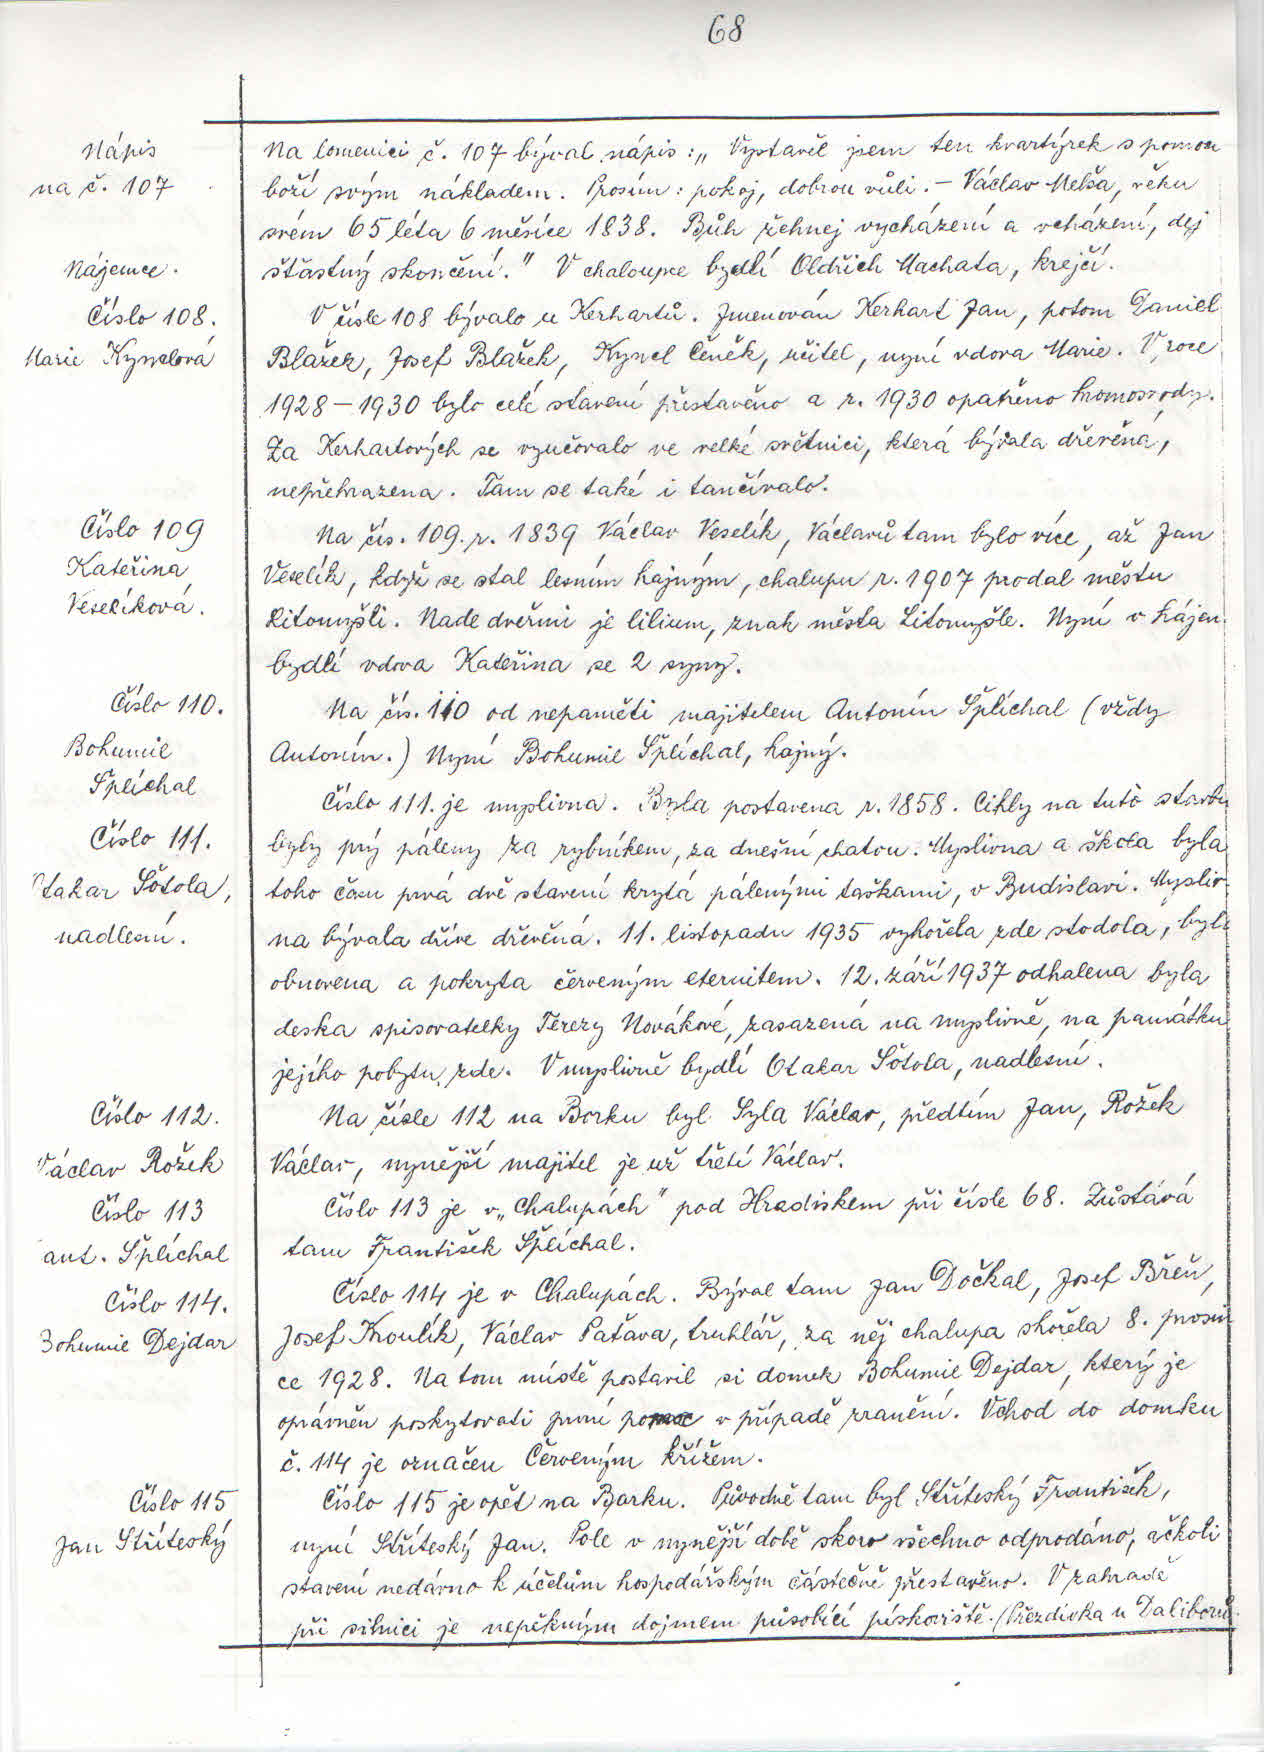 68
Nápis
na č. 107
Na lomenici č. 107 býval nápis: „Vystavěl jsem ten kvartýrek s pomocí
boží svým nákladem. Prosím: pokoj, dobrou vůli. – Václav Melša, věku
svém 65 léta 6 měsíce 1838. Bůh žehnej vycházení a vcházení, dej
Nájemce.
šťastný skončení." V chaloupce bydlí Oldřich Machata, krejčí.
Číslo 108.
Marie Kynclová
V čísle 108 bývalo u Kerhartů. Jmenován Kerhart Jan, potom Daniel
Blažek, Josef Blažek, Kyncl Čeněk, učitel, nyní vdova Marie. V roce
1928 – 1930 bylo celé stavení přestavěno a r. 1930 opatřeno hromosvody.
Za Kerhartových se vyučovalo ve velké světnici, která bývala dřevěná,
nepřehrazena. Tam se také i tančívalo.
Číslo 109
Kateřina
Veselíková.
Na čís. 109. r. 1839 Václav Veselík, Václavů tam bylo více, až Jan
Veselík, když se stal lesním hajným, chalupu r. 1907 prodal městu
Litomyšli. Nade dveřmi je lilium, znak města Litomyšle. Nyní v hájen.
bydlí vdova Kateřina se 2 syny.
Číslo 110.
Bohumil
Šplíchal
Na čís. 110 od nepaměti majitelem Antonín Šplíchal (vždy
Antonín.) Nyní Bohumil Šplíchal, hajný.
Číslo 111.
Otakar Šôtola,
nadlesní.
Číslo 111. je myslivna. Byla postavena r. 1858. Cihly na tuto stavbu
byly prý páleny za rybníkem, za dnešní chatou. Myslivna a škola byla
toho času prvá dvě stavení krytá pálenými taškami, v Budislavi. Mysliv-
na bývala dříve dřevěná. 11. listopadu 1935 vyhořela zde stodola, byla
obnovena a pokryta červeným eternitem. 12. září 1937 odhalena byla
deska spisovatelky Terezy Novákové, zasazená na myslivně, na památku
jejího pobytu zde. V myslivně bydlí Otakar Šôtola, nadlesní.
Číslo 112.
Václav Rožek
Na čísle 112 na Borku byl Syla Václav, předtím Jan, Rožek
Václav, nynější majitel je už třetí Václav.
Číslo 113
ant. Šplíchal
Číslo 113 je v „Chalupách" pod Hradiskem při čísle 68. Zůstává
tam František Šplíchal.
Číslo 114.
Bohumil Dejdar
Číslo 114 je v Chalupách. Býval tam Jan Dočkal, Josef Břeň,
Josef Kroulík, Václav Paťava, truhlář, za něj chalupa shořela 8. prosin
ce 1928. Na tom místě postavil si domek Bohumil Dejdar, který je
oprávněn poskytovati první pomoc v případě zranění. Vchod do domku
č. 114 je označen Červeným křížem.
Číslo 115
Jan Stříteský
Číslo 115 je opět na Borku. Původně tam byl Stříteský František,
nyní Stříteský Jan. Pole v nynější době skoro všechno odprodáno, ačkoli
stavení nedávno k účelům hospodářským částečně přestavěno. V zahradě
při silnici je nepěkným dojmem působící pískoviště. (Přezdívka u Daliborů.